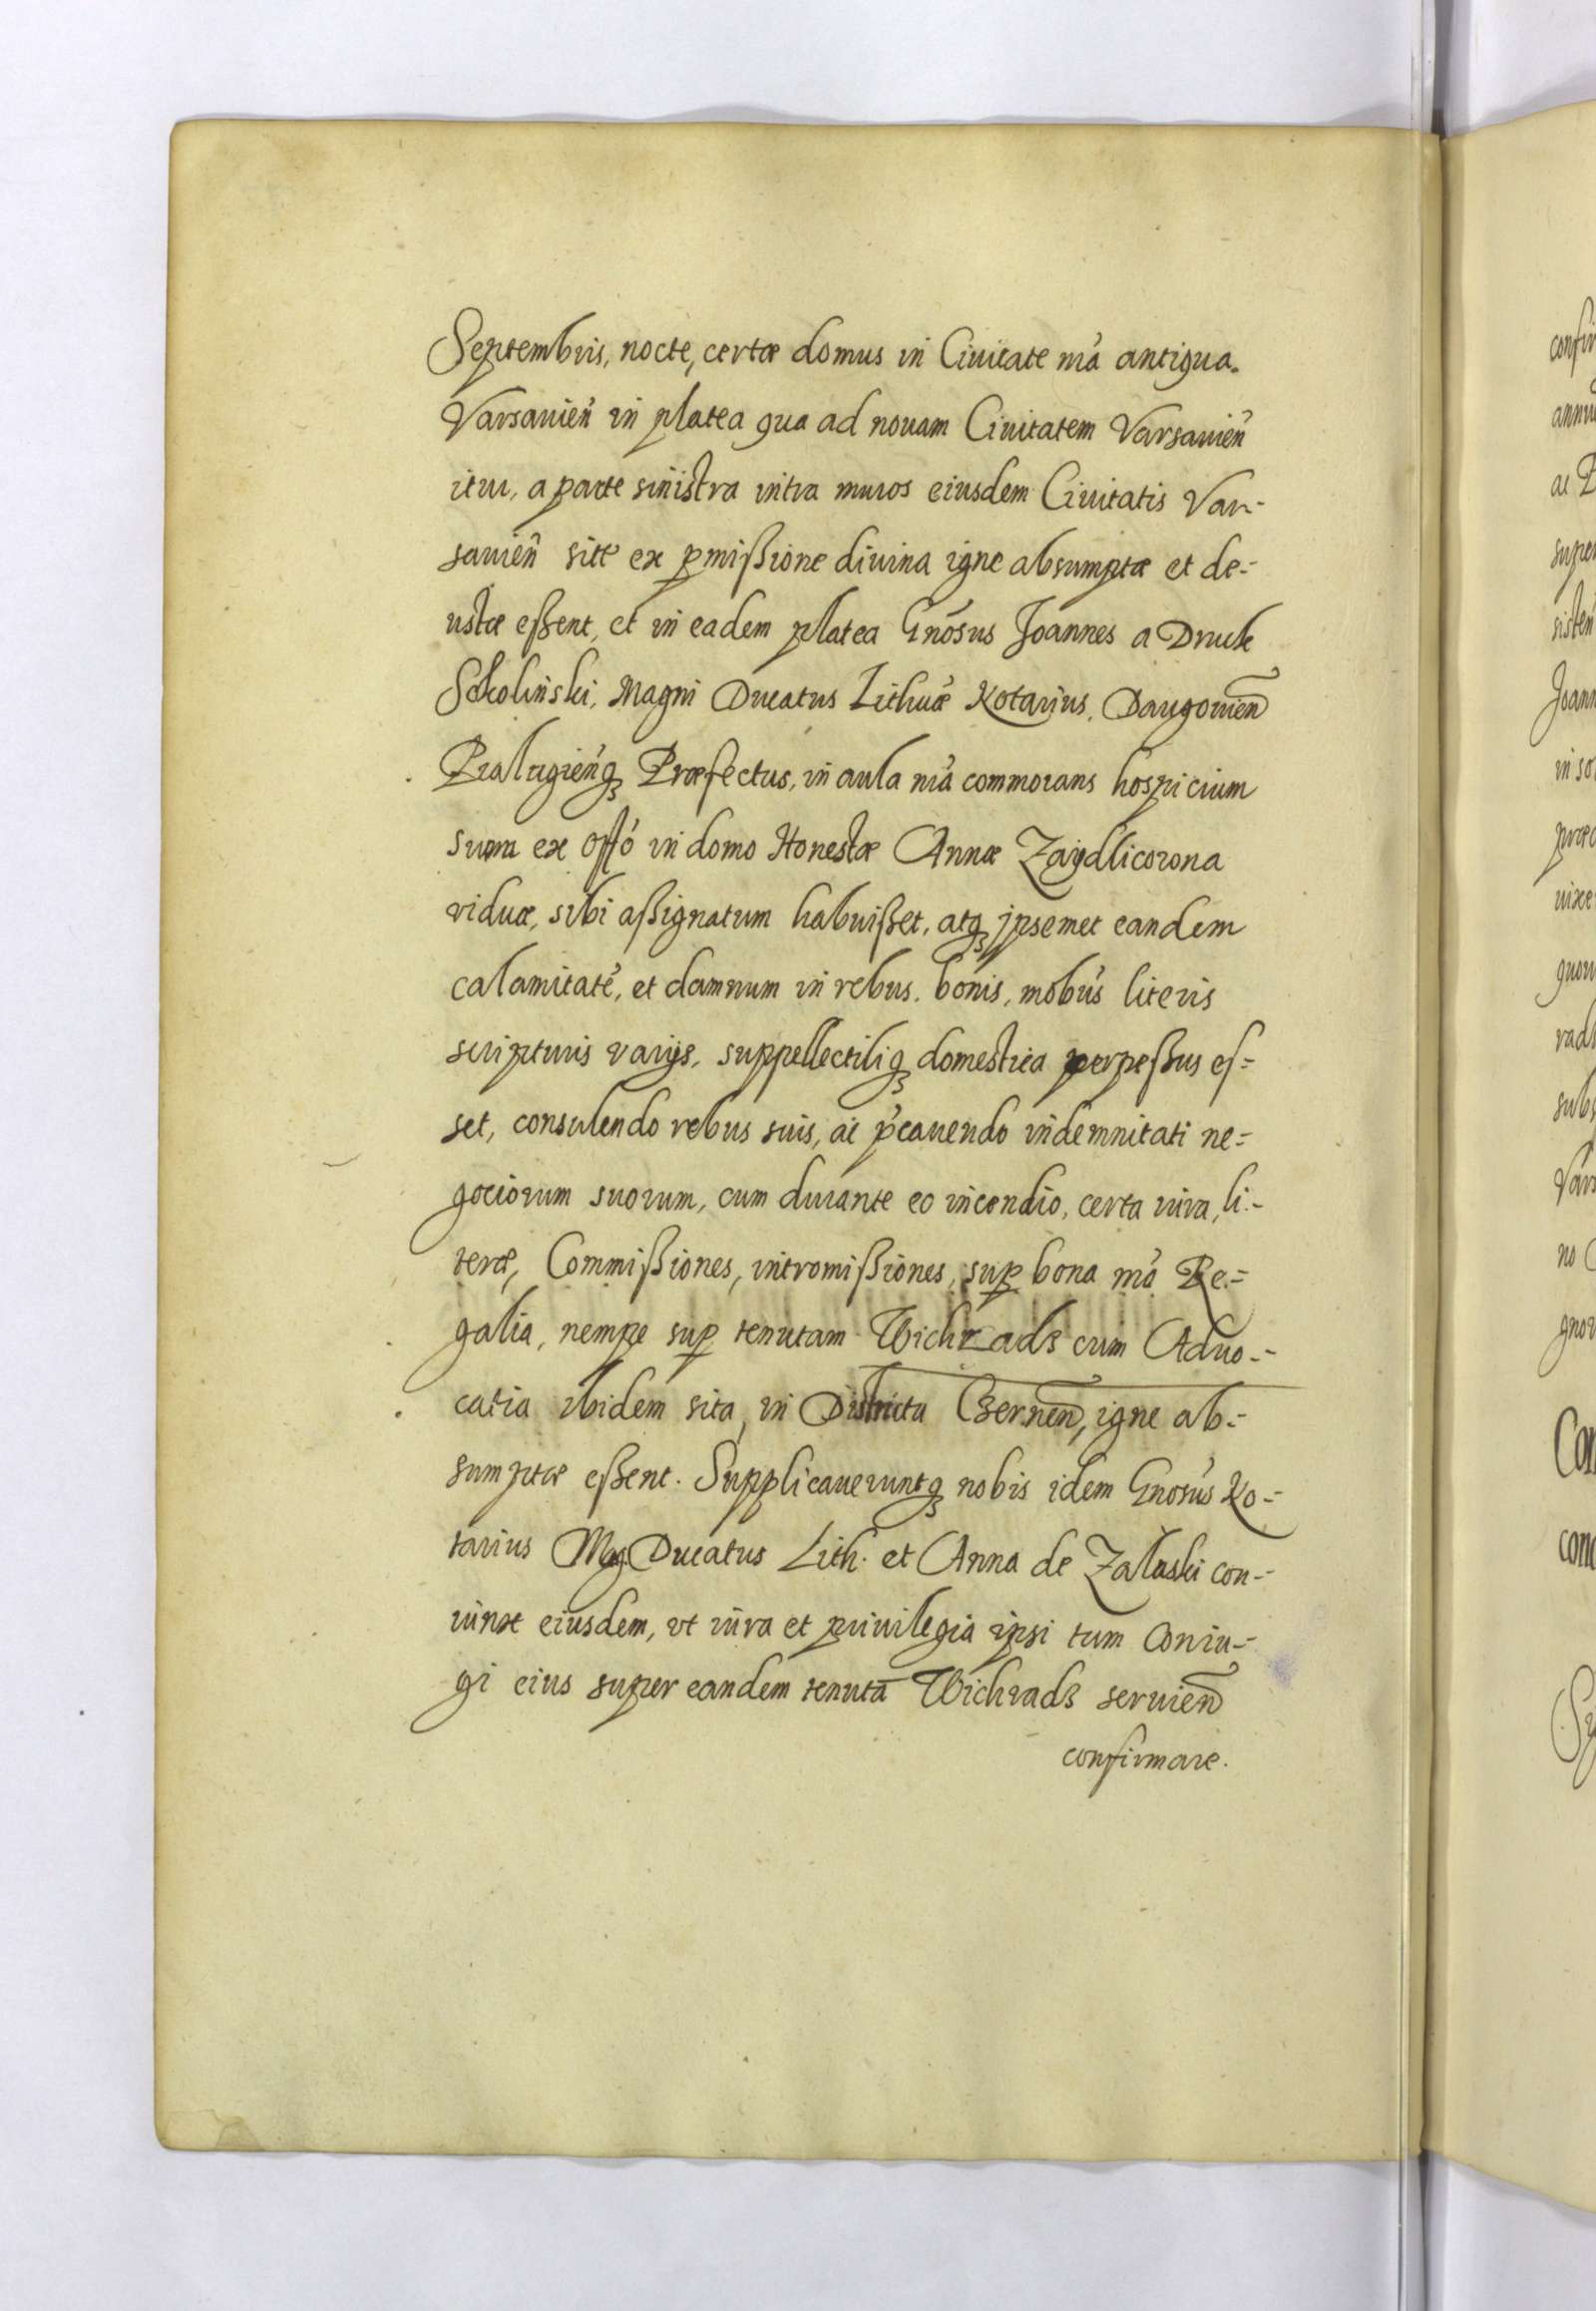 Septembris, nocte, certæ domus in Ciuitate nrá antiqua.
Varsauień in platea qua ad nouam Ciuitatem Varsauień
itur, a parte sinistra intra muros eiusdem Ciuitatis Var-
sauień sitæ ex pmißione diuina igne absumptæ et de-
ustæ eßent, et in eadem platea Gnósus Joannes a Druck
Sokoliński, Magni Ducatus Lithuæ Notarius, Daugouień
Pralugieńq Præfectus, in aula nrá commorans hospicium
suum ex offó in domo Honestæ Annæ Zaydlicorona
viduæ, sibi aßignatum habuißet, atq ipsemet eandem
calamitaté, et damnum in rebus, bonis, mobús literis
scripturis varijs, suppellectiliq domestica perpeßus es-
set, consulendo rebus suis, ac pcauendo indemnitati ne-
gociorum suorum, cum durante eo incendio, certa iura, li-
teræ, Commißiones, intromißiones, sup bona nrá Re-
galia, nempe sup tenutam Wichradz cum Aduo-
catia ibidem sita, in Districtu Czerneń, igne ab-
sumptæ eßent. Supplicaueruntq nobis idem Gnosús No-
tarius Mag Ducatus Lith. et Anna de Zaluski con-
iunx eiusdem, vt iura et priuilegia ipsi tum Coniu-
gi eius super eandem tenutā Wichradz seruień
confirmare.
confir
annu
ac
super
sisten
Joann
in so
præc
uixe
quoru
radz
subs
Vars
no
gnor
Con
conc
Sy